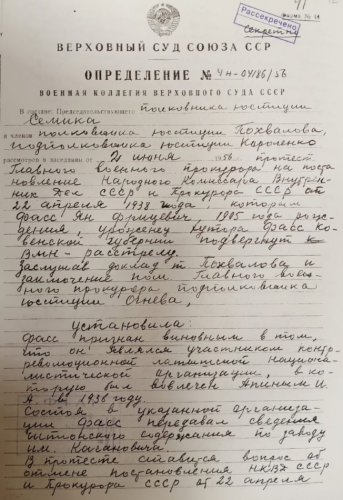 41
Рассекречено
Форма № 14
Секретно
ВЕРХОВНЫЙ СУД СОЮЗА ССР
ОПРЕДЕЛЕНИЕ № 4н-04186/56
ВОЕННАЯ КОЛЛЕГИЯ ВЕРХОВНОГО СУДА СССР
В составе: Председательствующего полковника юстиции
Семика
и членов полковника юстиции Похвалова,
подполковника юстиции Короленко
рассмотрев в заседании от 21 июня 1956 г. протест
Главного военного прокурора на поста-
новление Народного Комиссара Внутрен-
них Дел СССР и Прокурора СССР от
22 апреля 1938 года, которым
Фасс Ян Фрицевич, 1905 года рож-
дения, уроженец хутора Фасс Ко-
венской губернии подвергнут к
ВМН - расстрелу.
Заслушав доклад т. Похвалова и
заключение пом. Главного воен-
ного прокурора подполковника
юстиции Огнева,
установила:
Фасс признан виновным в том,
что он: Являлся участником контр-
революционной латышской национа-
листической организации, в ко-
торую был вовлечен Апиным И.
А. в 1936 году.
Состоя в указанной организа-
ции Фасс передавал сведения
шпионского содержания по заводу
им. Кагановича.
В протесте ставится вопрос об
отмене постановления НКВД СССР
и Прокурора СССР от 22 апреля